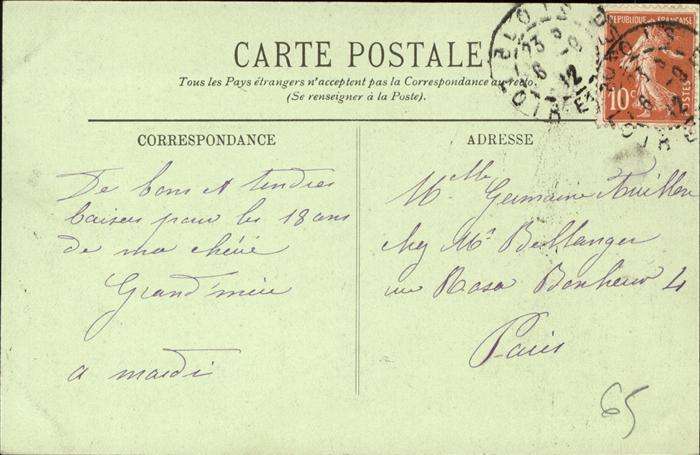 CARTE POSTALE
Tous les Pays étrangers n'acceptent pas la Correspondance au recto.
(Se renseigner à la Poste).
REPUBLIQUE FRANÇAISE
10c
POSTES
BLOIS
CORRESPONDANCE
ADRESSE
De bons et tendres
baisers pour les 18 ans
de ma chérie
Grand'mère
a mardi
Melle Germaine
chez Mr Bellanger
rue Rosa Bonheur 4
Paris
65